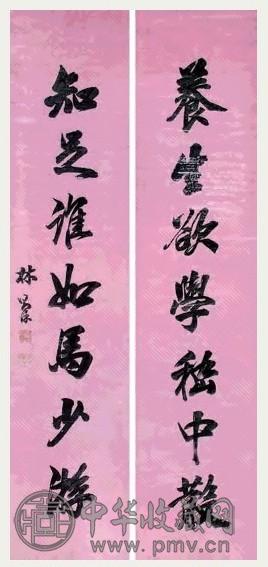 養生欲學嵇中散
知足誰如馬少游
中华收藏网
www.pmv.cn